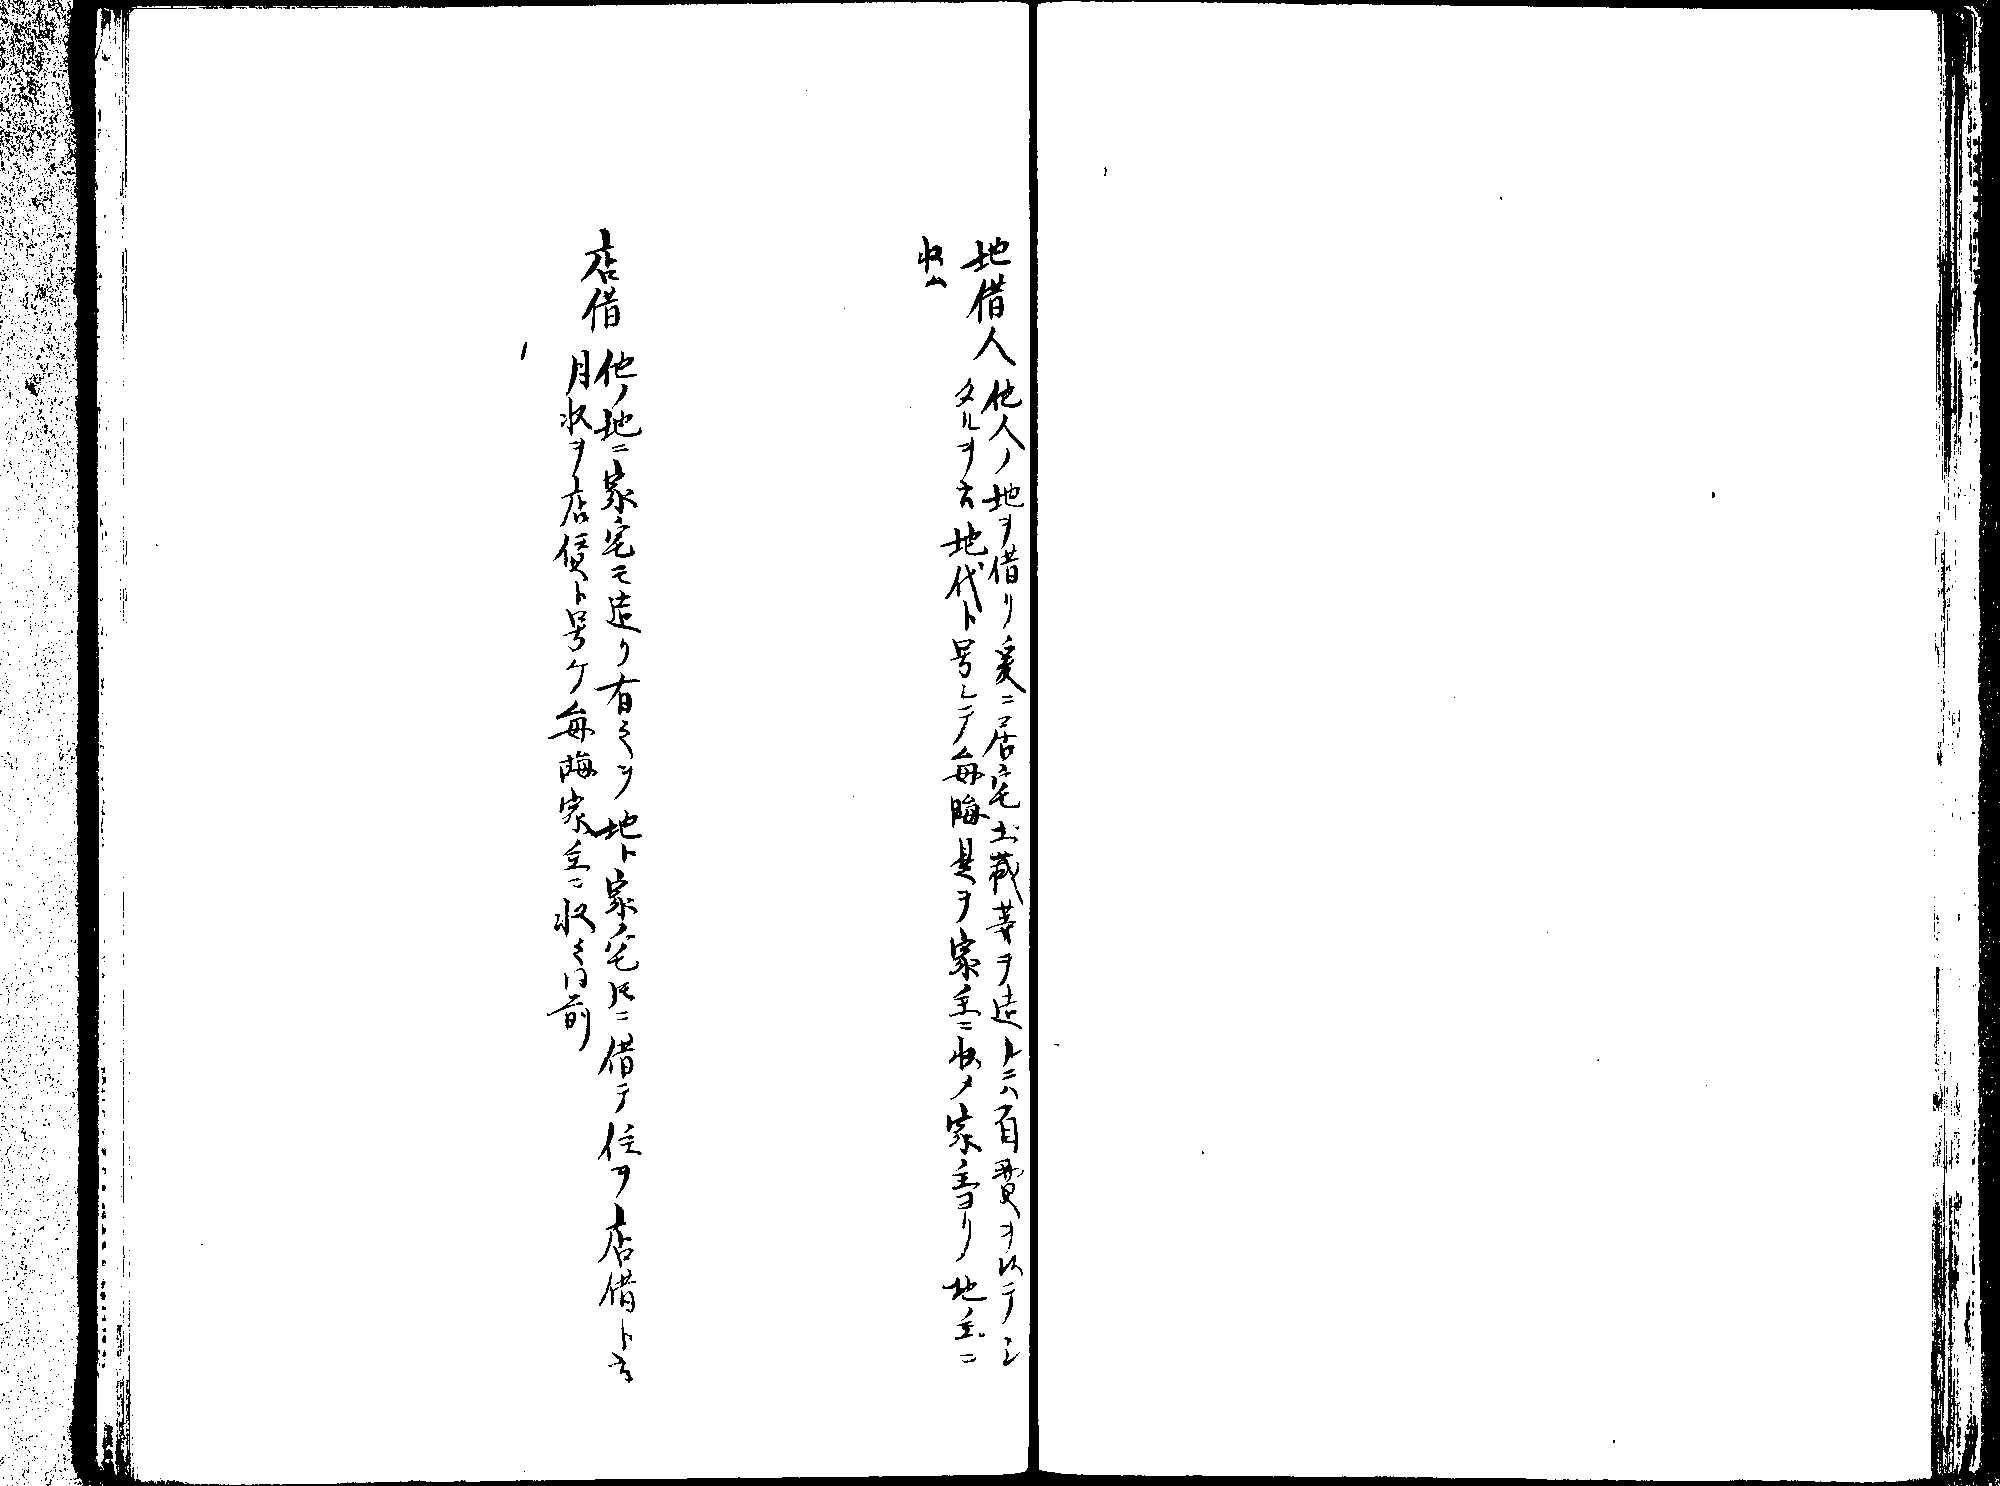 地借人 他人ノ地ヲ借リ爰ニ居宅土蔵等ヲ造ルニハ自費ヲ以テシ
タルヲ云地代ト号シテ毎晦是ヲ家主ニ収メ家主ヨリ地主ニ
収ム
店借 他ノ地ニ家宅モ造リ有之ヲ地ト家宅尺ニ借テ住ヲ店借ト云
月収ヲ店賃ト号ケ毎晦家主ニ収之同前